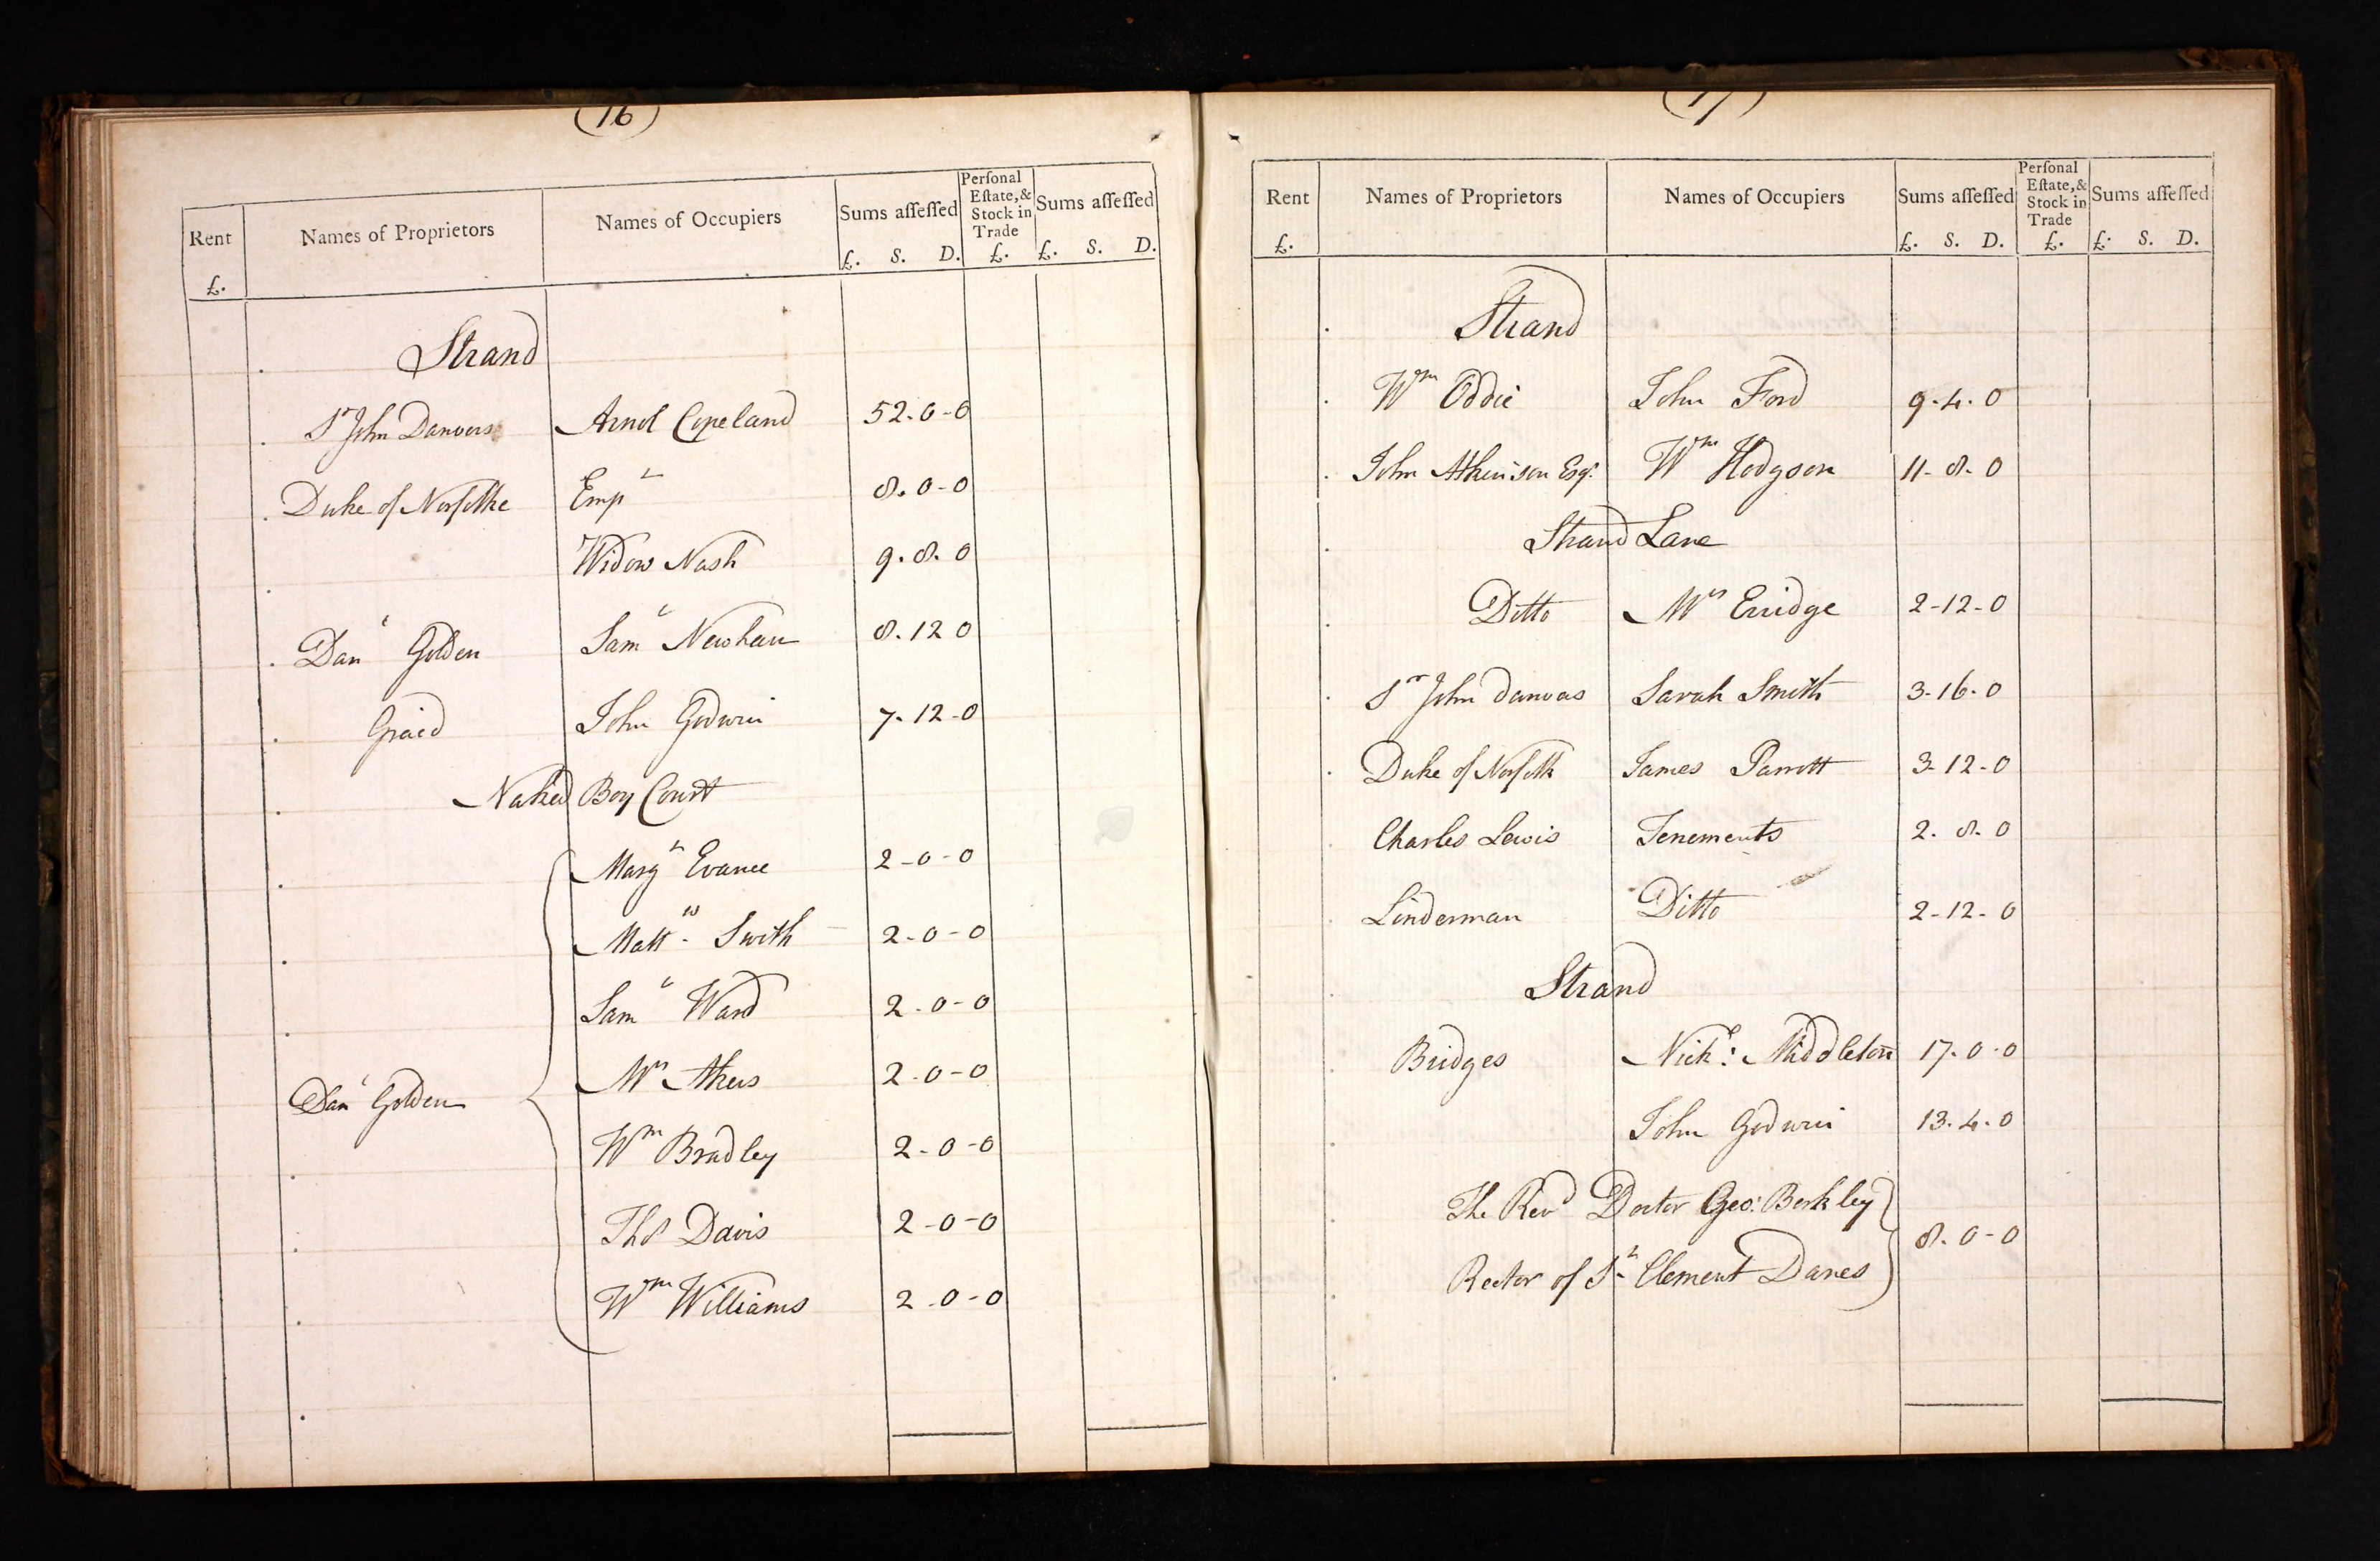 (16)
Rent Names of Proprietors Names of Occupiers Sums aſſeſſed Perſonal Eſtate, & Stock in Trade Sums aſſeſſed
£. £. S. D. £. £. S. D.
Strand
Sr John Danvers Arnol Copeland 52-0-0
Duke of Norfolke Empt 8.0-0
Widow Nash 9.8.0
Danl Golden Saml Newham 8.12 0
Graid John Godwin 7.12-0
Naked Boy Court
Margt Evance 2-0-0
Mattw Swith 2-0-0
Saml Ward 2.0-0
Mrs Akers 2.0-0
Danl Golden
Wm Bradley 2-0-0
Thos Davis 2-0-0
Wm Williams 2.0-0
(17)
Rent Names of Proprietors Names of Occupiers Sums aſſeſſed Perſonal Eſtate, & Stock in Trade Sums aſſeſſed
£. £. S. D. £. £. S. D.
Strand
Wm Oddie John Ford 9.4.0
John Atkinson Esqr. Wm Hodgson 11-8-0
Strand Lane
Ditto Mrs Erridge 2-12-0
Sr John Danvas Sarah Smith 3-16-0
Duke of Norfolk James Parrott 3-12-0
Charles Lewis Tenements 2.8.0
Linderman Ditto 2-12-0
Strand
Bridges Nichs: Middleton 17.0-0
John Godwin 13.4.0
The Revd Doctor Geo: Berkley
8.0-0
Rector of St Clement Danes